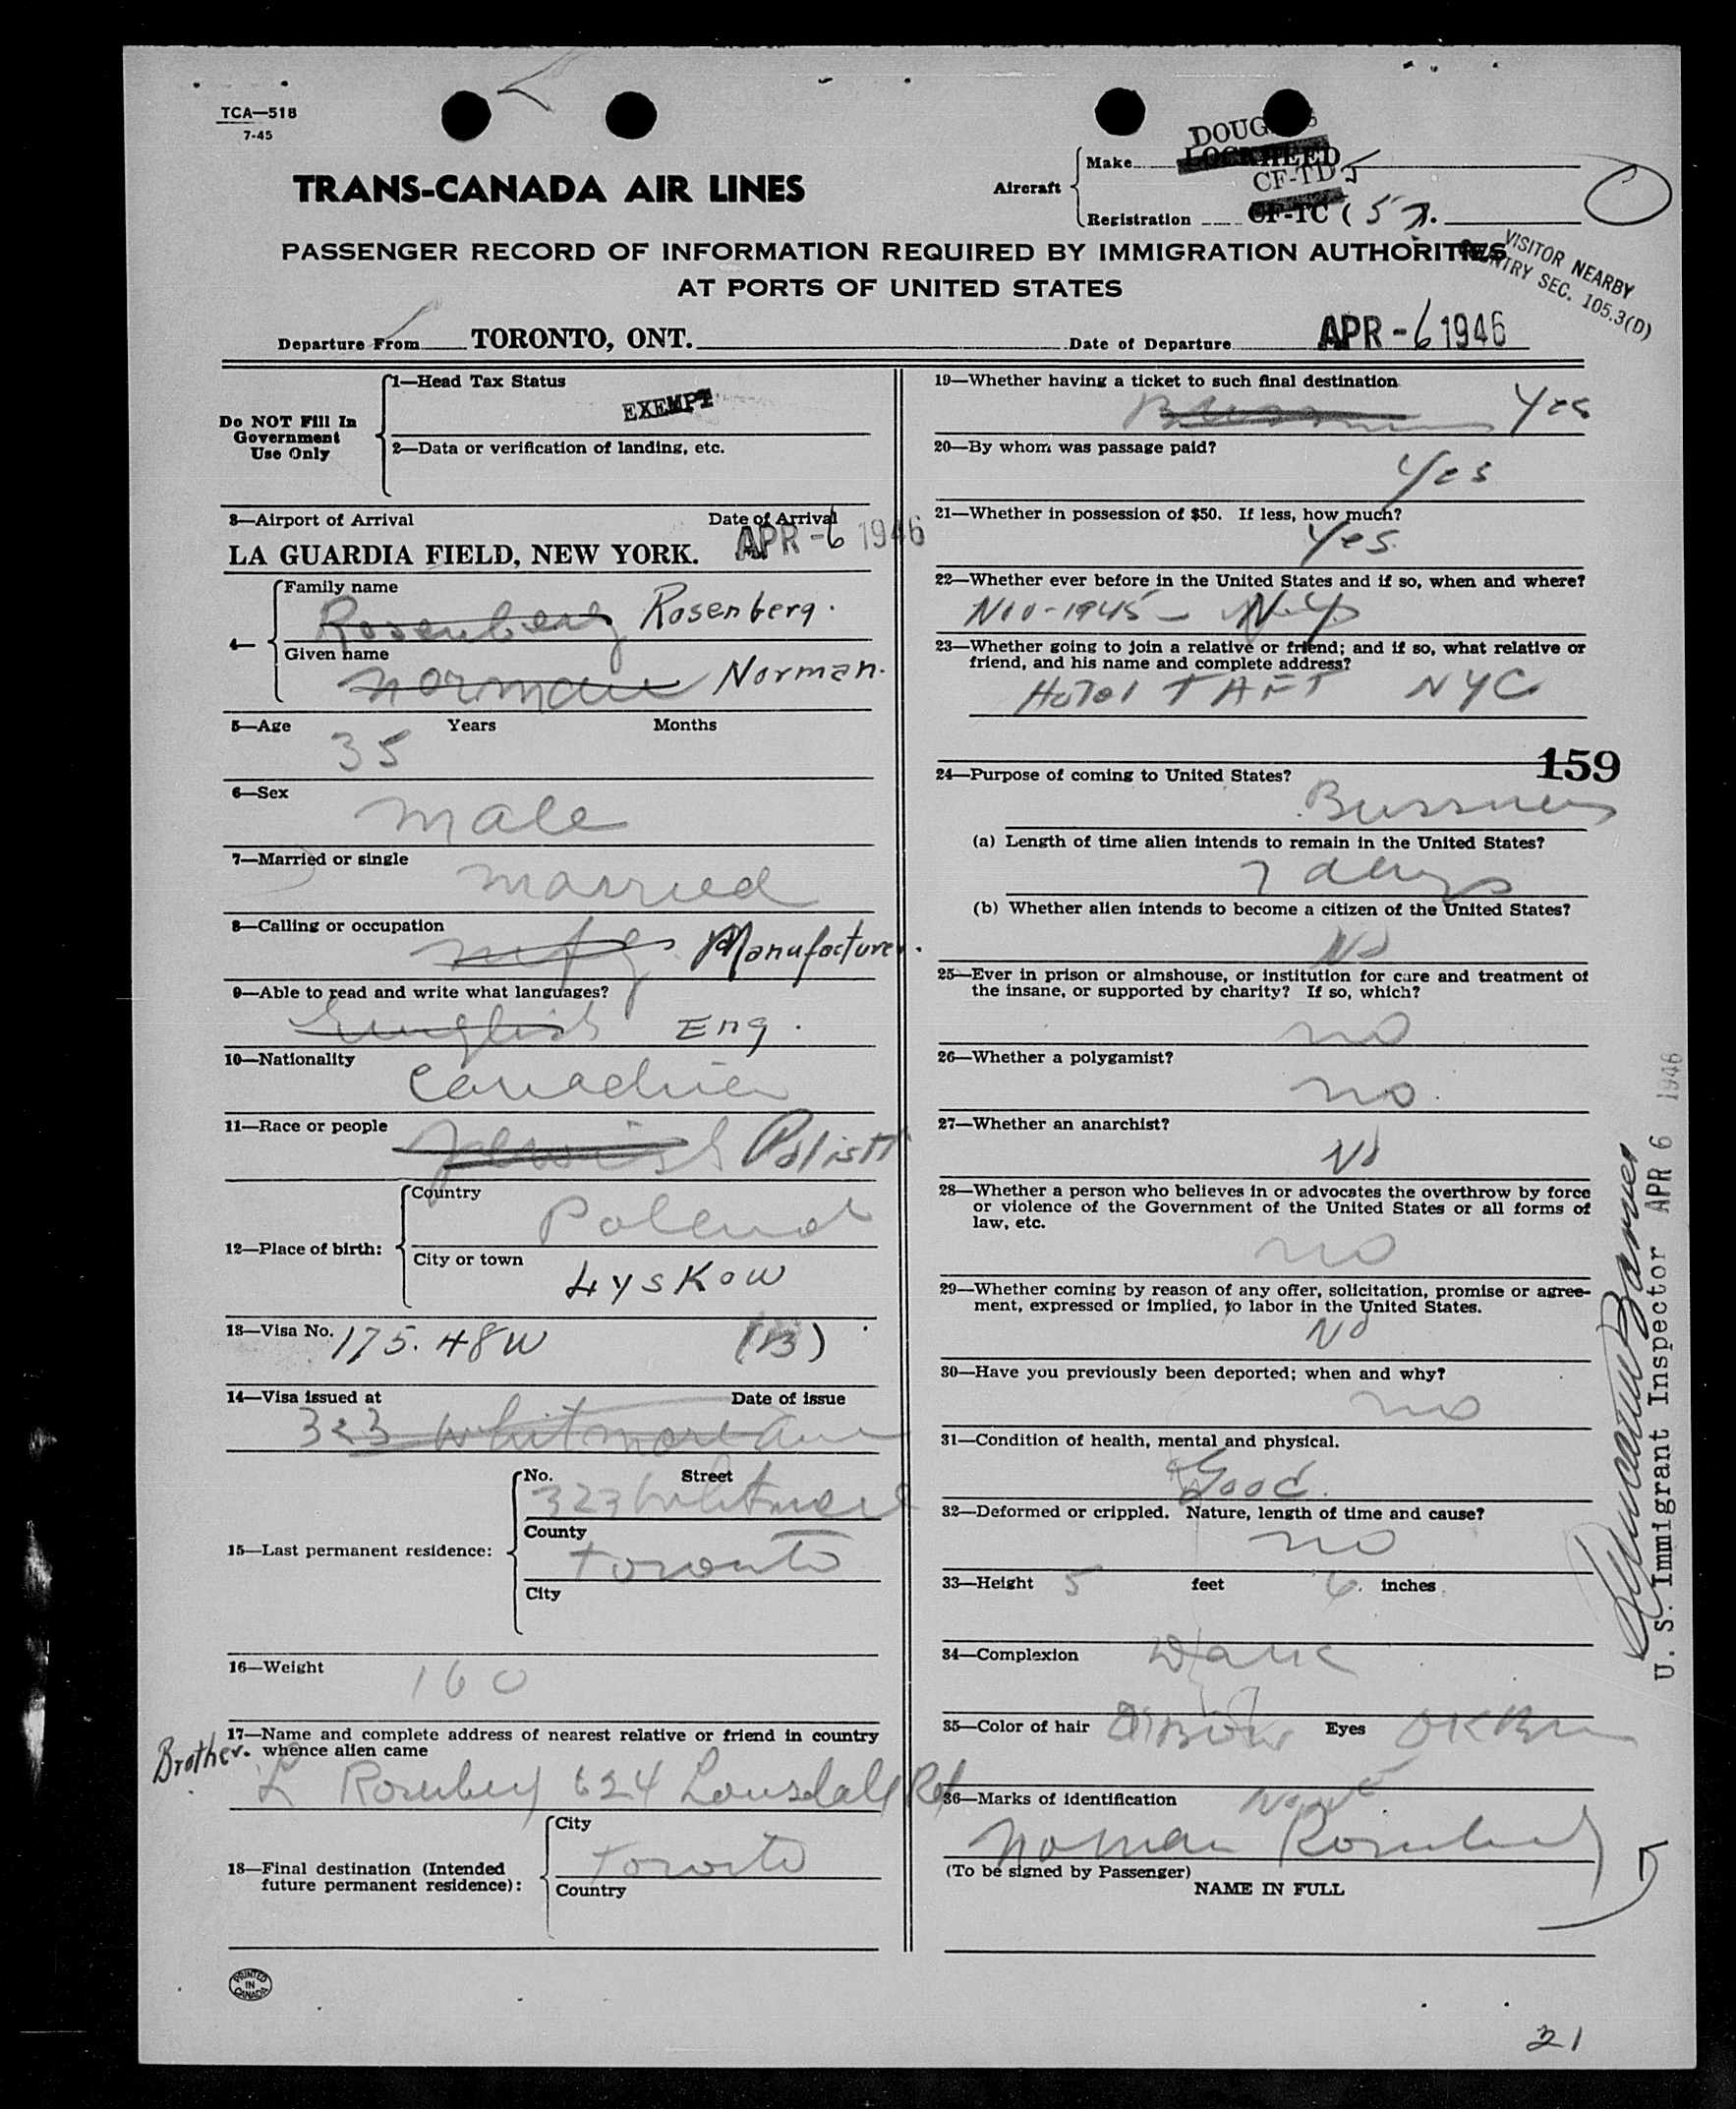 TCA—518
7-45
TRANS-CANADA AIR LINES
Aircraft
Make
DOUGLAS
LOCKHEED
CF-TD J
Registration CF-TC ( 57.
PASSENGER RECORD OF INFORMATION REQUIRED BY IMMIGRATION AUTHORITIES
AT PORTS OF UNITED STATES
VISITOR NEARBY
COUNTRY SEC. 105.3(D)
Departure From TORONTO, ONT.
Date of Departure APR -6 1946
Do NOT Fill In
Government
Use Only
1—Head Tax Status
EXEMPT
2—Data or verification of landing, etc.
3—Airport of Arrival Date of Arrival
LA GUARDIA FIELD, NEW YORK. APR -6 1946
4—
Family name
Rosenberg Rosenberg.
Given name
Norman Norman.
5—Age Years Months
35
6—Sex
Male
7—Married or single
married
8—Calling or occupation
mfg Manufacturer.
9—Able to read and write what languages?
English Eng.
10—Nationality
Canadian
11—Race or people
Jewish Polish
12—Place of birth:
Country
Poland
City or town
Lyskow
13—Visa No. 175.48W (B)
14—Visa issued at Date of issue
323 Whitmore Ave
15—Last permanent residence:
No. Street
323 Whitmore
County
Toronto
City
16—Weight 160
17—Name and complete address of nearest relative or friend in country
whence alien came
Brother.
L Rosenberg 624 Lonsdale Rd
18—Final destination (Intended
future permanent residence):
City
Toronto
Country
PRINTED
IN
CANADA
19—Whether having a ticket to such final destination
Yes
20—By whom was passage paid?
Yes
21—Whether in possession of $50. If less, how much?
Yes.
22—Whether ever before in the United States and if so, when and where?
Nov-1945 — N.Y.
23—Whether going to join a relative or friend; and if so, what relative or
friend, and his name and complete address?
Hotel TAFT NYC
159
24—Purpose of coming to United States?
Bussness
(a) Length of time alien intends to remain in the United States?
7 days
(b) Whether alien intends to become a citizen of the United States?
No
25—Ever in prison or almshouse, or institution for care and treatment of
the insane, or supported by charity? If so, which?
no
26—Whether a polygamist?
no.
27—Whether an anarchist?
No
28—Whether a person who believes in or advocates the overthrow by force
or violence of the Government of the United States or all forms of
law, etc.
no
29—Whether coming by reason of any offer, solicitation, promise or agree-
ment, expressed or implied, to labor in the United States.
No
30—Have you previously been deported; when and why?
no
31—Condition of health, mental and physical.
Good.
32—Deformed or crippled. Nature, length of time and cause?
no
33—Height 5 feet 6. inches
34—Complexion Dark
35—Color of hair Eyes DKBrn
36—Marks of identification None
Norman Rosenberg
(To be signed by Passenger)
NAME IN FULL
U. S. Immigrant Inspector APR 6 1946
21